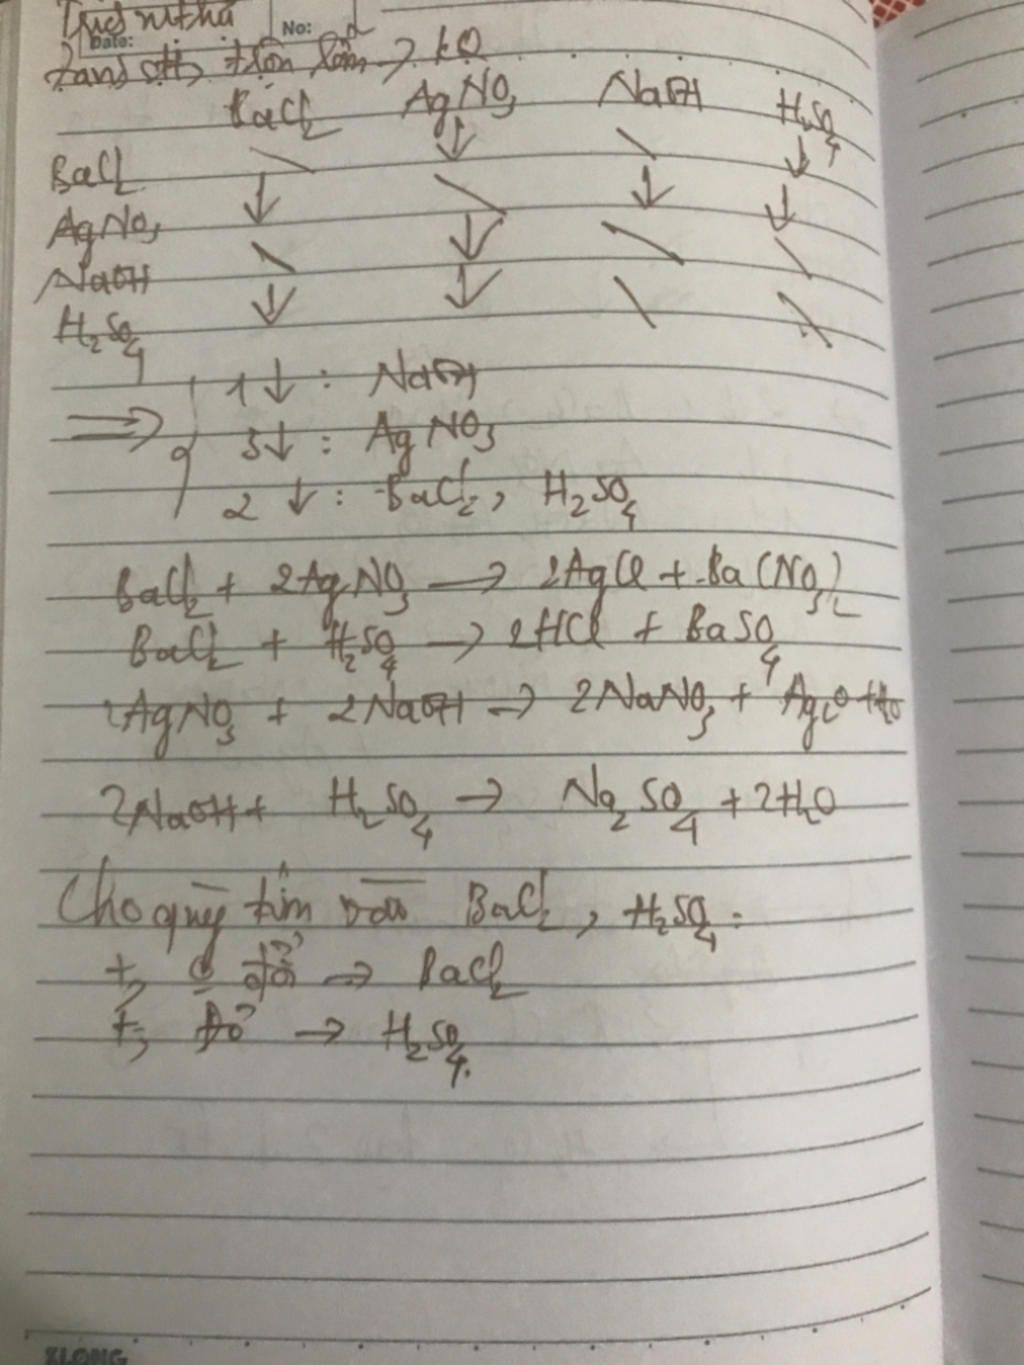 Trích mẫu thử
No:
Date:
trộn lẫn → KQ
BaCl2 AgNO3 NaOH H2SO4
BaCl2 \ ↓ \ ↓
AgNO3 ↓ \ ↓ ↓
NaOH \ ↓ \ \
H2SO4 ↓ ↓ \ \
⇒ { 1↓ : NaOH
3↓ : AgNO3
2 ↓ : BaCl2, H2SO4
BaCl2 + 2AgNO3 → 2AgCl + Ba(NO3)2
BaCl2 + H2SO4 → 2HCl + BaSO4
2AgNO3 + 2NaOH → 2NaNO3 + Ag2O + H2O
2NaOH + H2SO4 → Na2SO4 + 2H2O
Cho quỳ tím vào BaCl2, H2SO4:
+, đổi → BaCl2
+, Đỏ → H2SO4.
KLONG